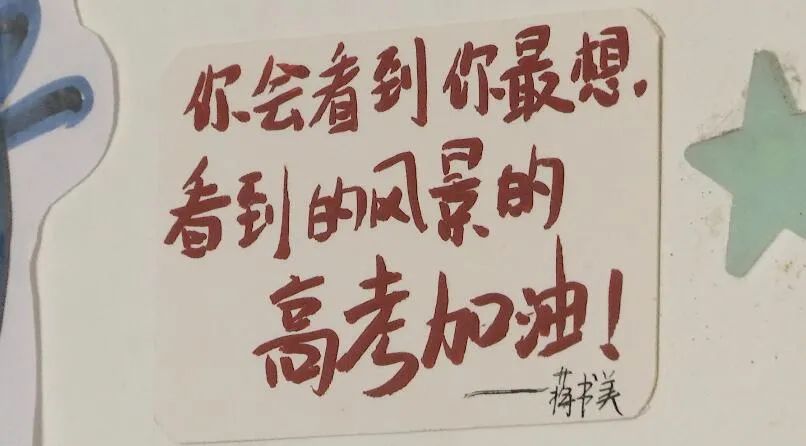 你会看到你最想
看到的风景的
高考加油!
——蒋书美